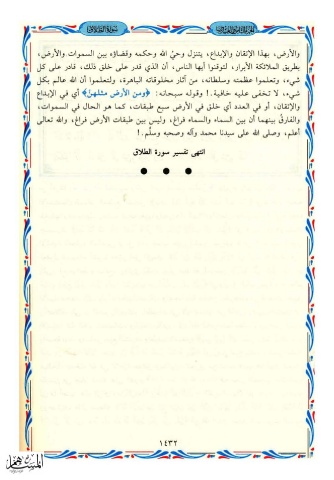 سورة الطلاق
والأرض، بهذا الإتقان والإبداع، يتنزل وحيُ الله وحكمه وقضاؤه بين السموات والأرض،
بطريق الملائكة الأبرار، لتوقنوا أيها الناس، أن الذي قدر على خلق ذلك، قادر على كل
شيء، وتعلموا عظمته وسلطانه، من آثار مخلوقاته الباهرة، ولتعلموا أن الله عالم بكل
شيء، لا تخفى عليه خافية.! وقوله سبحانه: ﴿ومن الأرض مثلهنّ﴾ أي في الإبداع
والإتقان، أو في العدد أي خلق في الأرض سبع طبقات، كما هو الحال في السموات،
والفارقُ بينهما أن بين السماء والسماء فراغ، وليس بين طبقات الأرض فراغ، والله تعالى
أعلم، وصلى الله على سيدنا محمد وآله وصحبه وسلَّم.!
انتهى تفسير سورة الطلاق
١٤٣٢